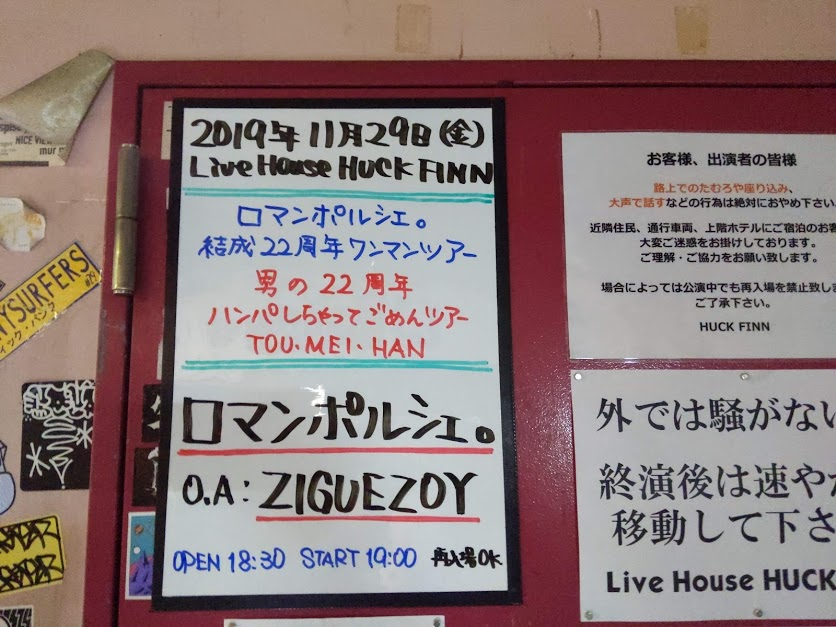 2019年11月29日(金)
Live House HUCK FINN
ロマンポルシェ。
結成22周年ワンマンツアー
男の22周年
ハンパしちゃってごめんツアー
TOU・MEI・HAN
ロマンポルシェ。
O.A: ZIGUEZOY
OPEN 18:30 START 19:00 再入場OK
お客様、出演者の皆様
路上でのたむろや座り込み、
大声で話すなどの行為は絶対におやめ下さい
近隣住民、通行車両、上階ホテルにご宿泊のお客
大変ご迷惑をお掛けしております。
ご理解・ご協力をお願い致します。
場合によっては公演中でも再入場を禁止致しま
ご了承下さい。
HUCK FINN
外では騒がない
終演後は速やか
移動して下さ
Live House HUCK
NICE VIEW
YSURFERS
ィック・バンク